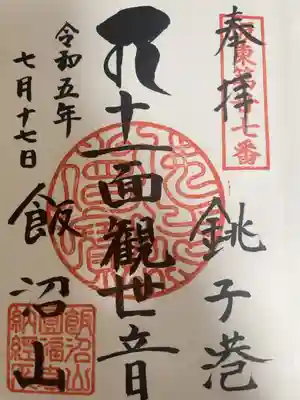 奉拝
坂東第二十七番
銚子港
十一面観世音
飯沼山
令和五年
七月十七日
飯沼山
圓福寺
納経印